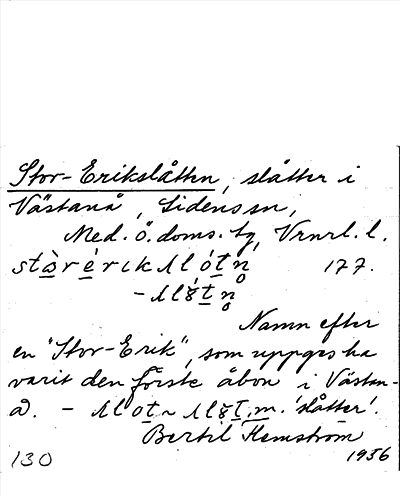 Stor-Erikslåtten, slåtter i
Västanå, Lidens sn,
Med. Ö. doms. tg, Vrnrl. l.
177.
Namn efter
en "Stor-Erik", som uppges ha
varit den förste åbon i Västan-
å. - 'slåtter'.
Bertil Hemström
130 1936